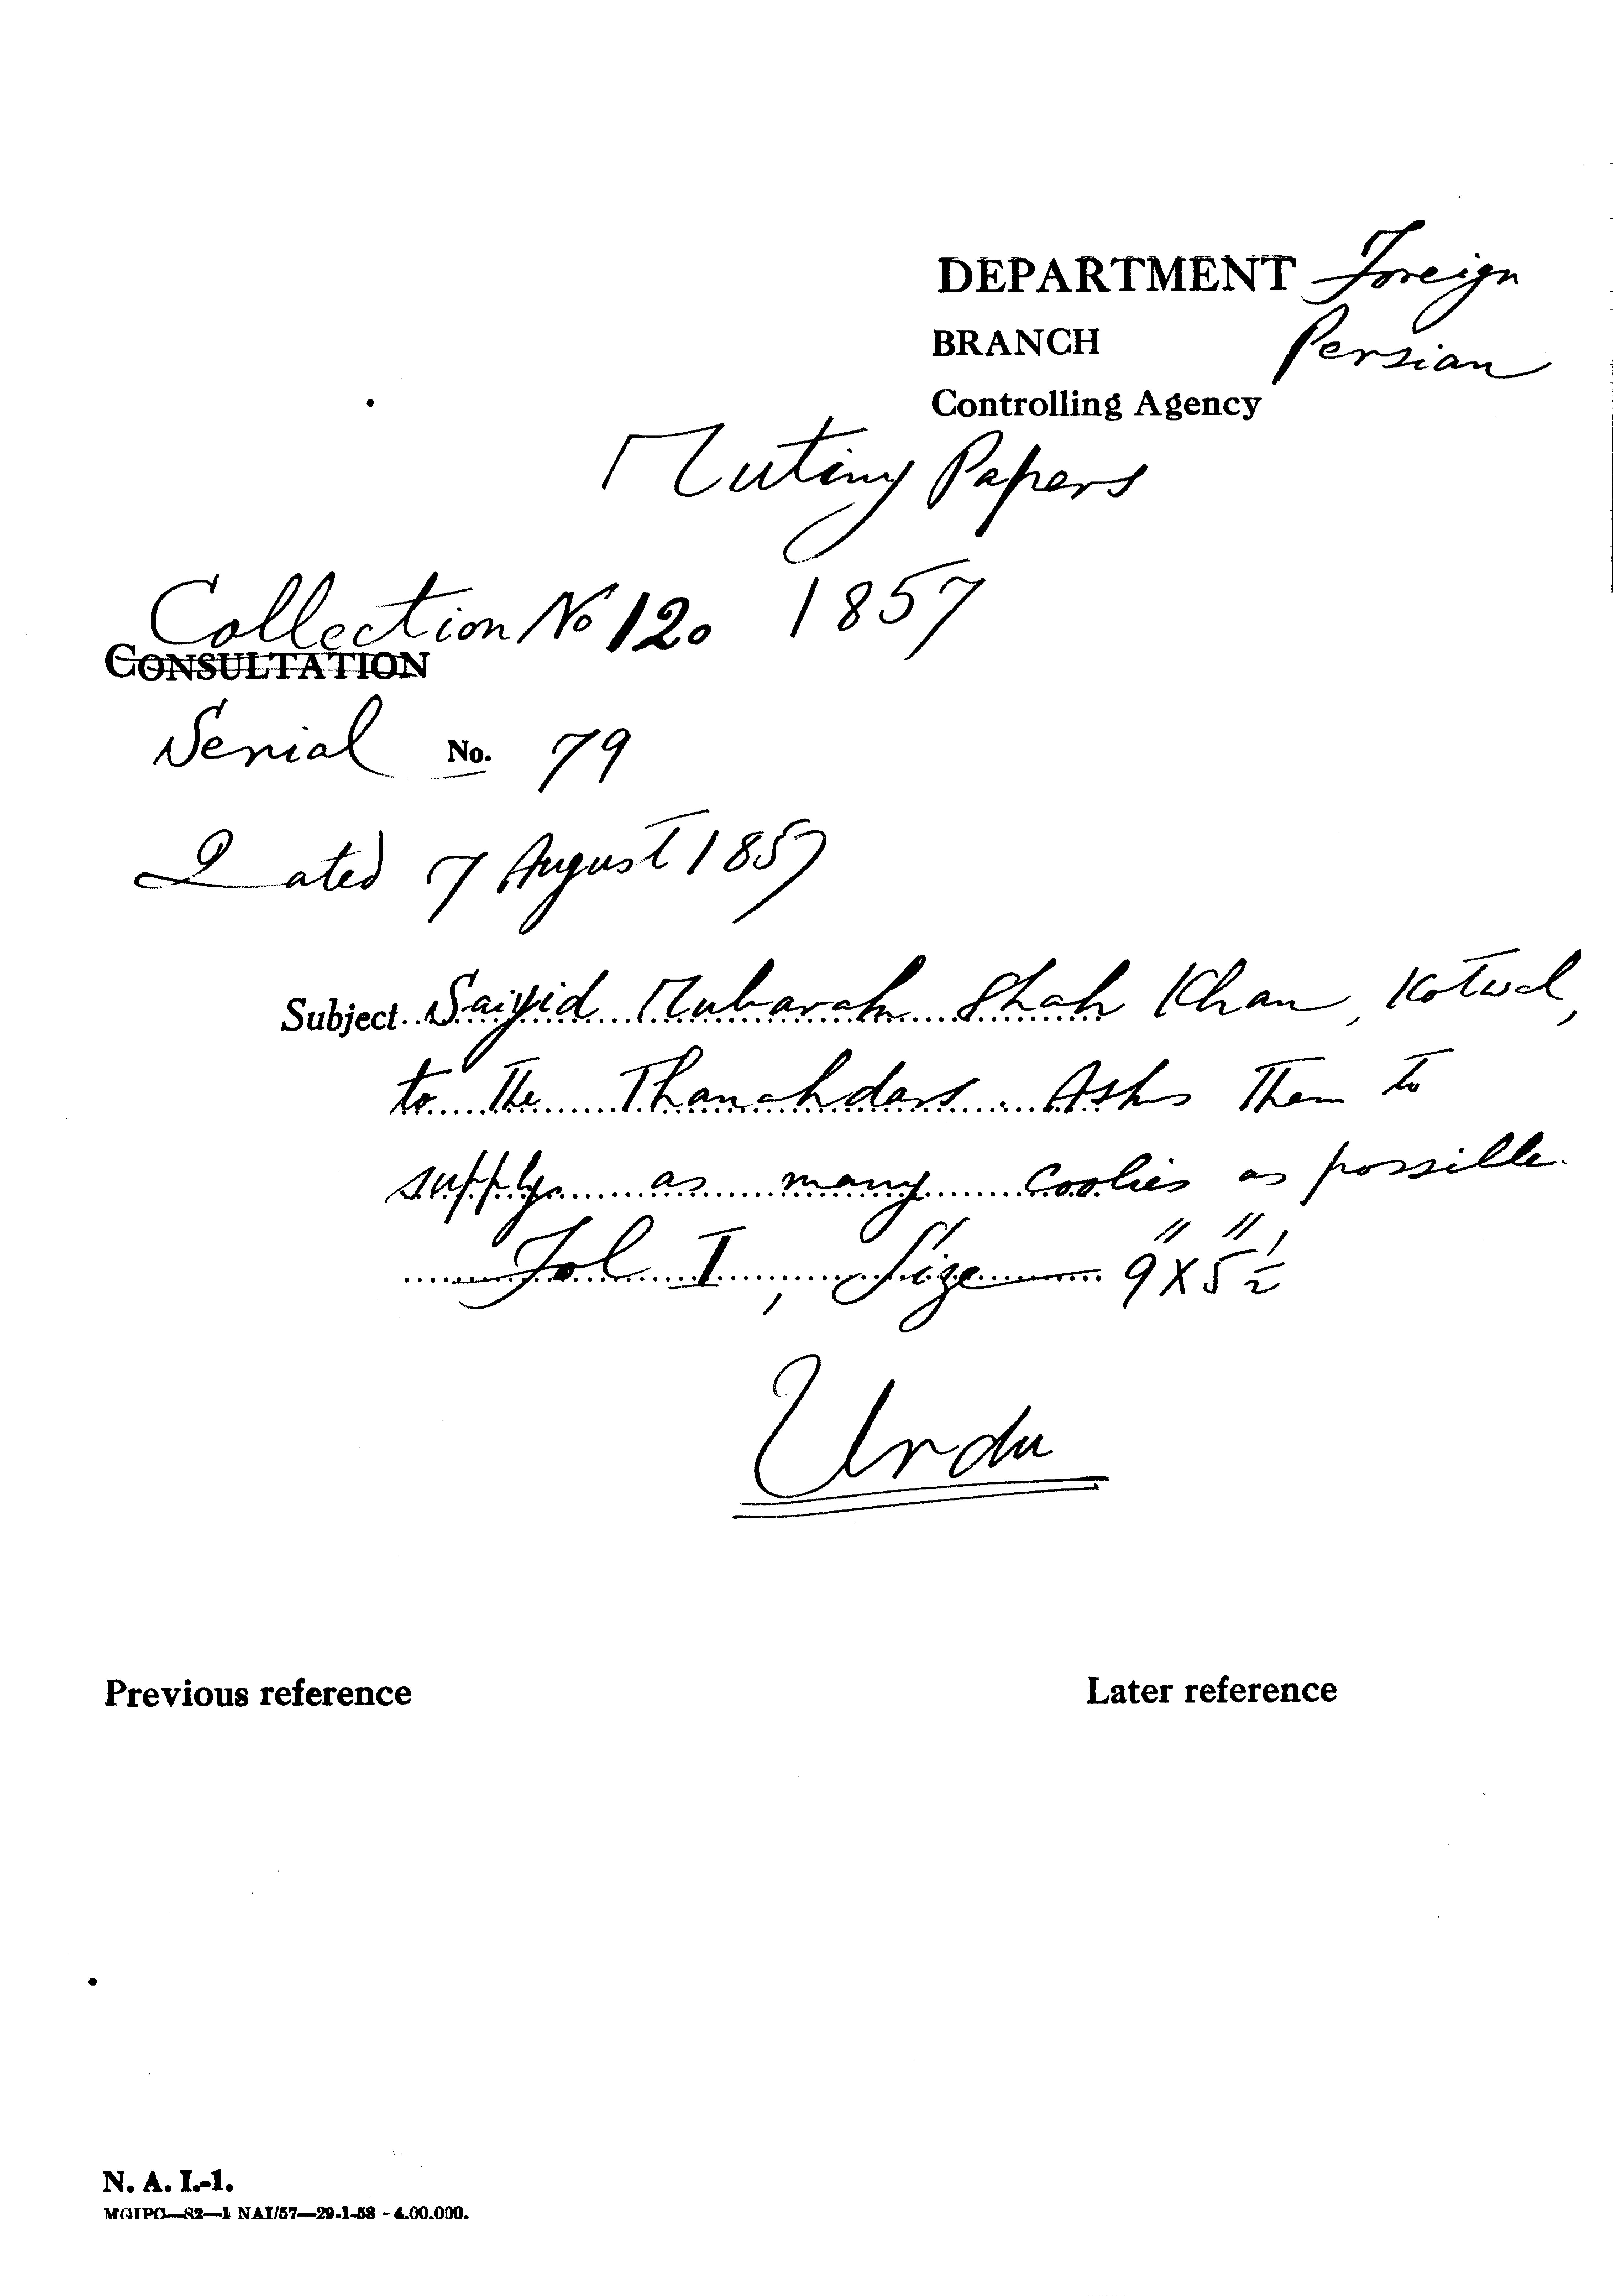 DEPARTMENT Foreign
BRANCH Persian
Controlling Agency
Mutiny Papers
Collection No 120 1857
CONSULTATION
Serial No. 79
Dated 7 August 1857
Subject Saiyid Mubarak Shah Khan, Kotwal,
to the Thanahdars. Asks them to
supply as many coolies as possible.
Fol I, Size 9" X 5 1/2"
Urdu
Previous reference Later reference
N. A. I.-1.
MGIPC—S2—1 NAI/57—29-1-58—4,00,000.